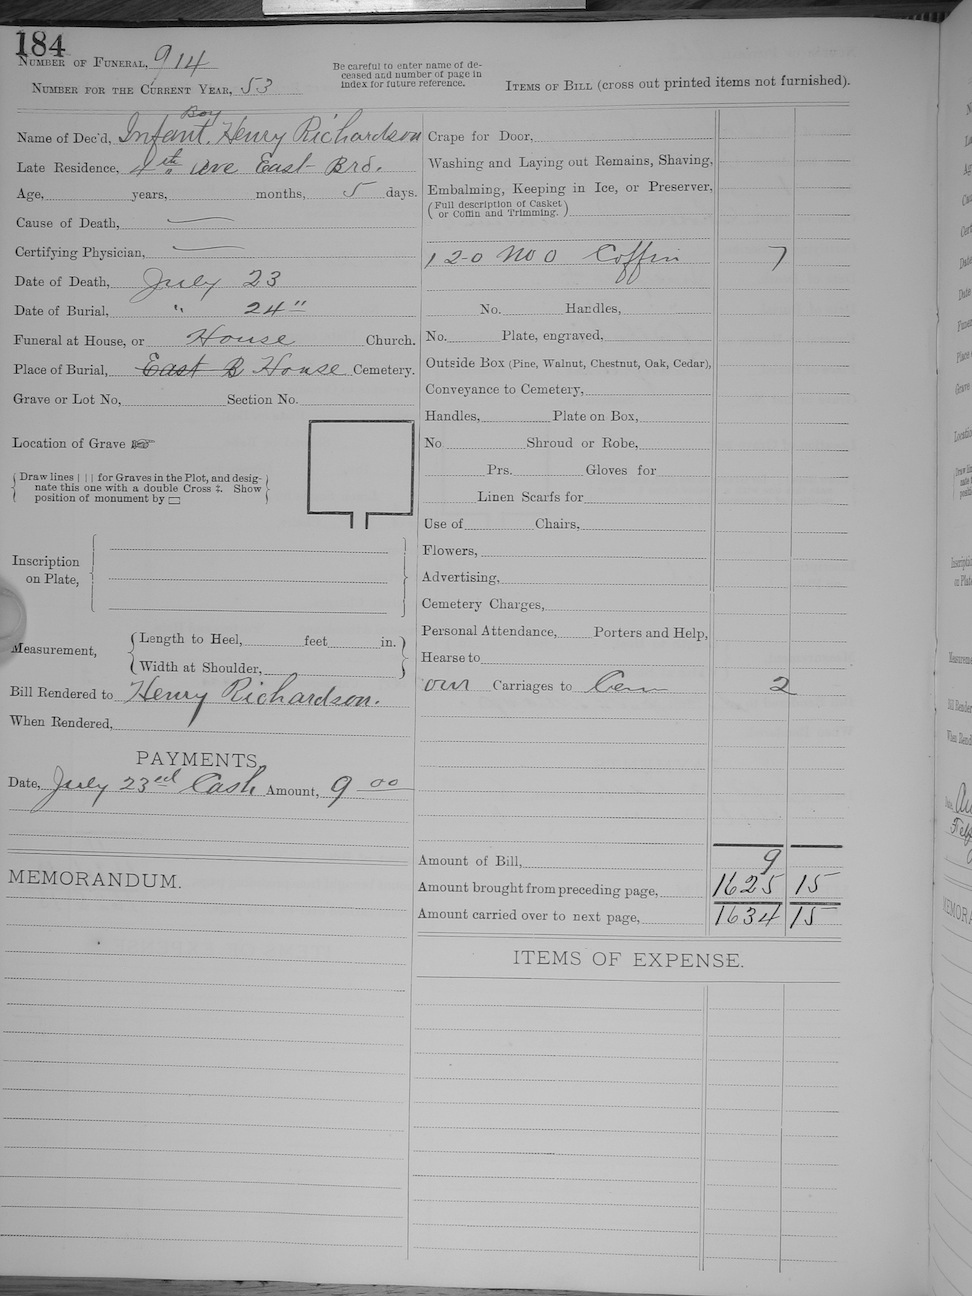 184
NUMBER OF FUNERAL, 914
NUMBER FOR THE CURRENT YEAR, 53
Be careful to enter name of de-
ceased and number of page in
index for future reference.
ITEMS OF BILL (cross out printed items not furnished).
Boy
Name of Dec'd, Infant, Henry Richardson
Late Residence, 4th Ave East Bro.
Age, years, months, 5 days.
Cause of Death,
Certifying Physician,
Date of Death, July 23
Date of Burial, " 24"
Funeral at House, or House Church.
Place of Burial, East B House Cemetery.
Grave or Lot No, Section No.
Location of Grave ☞
Draw lines | | | for Graves in the Plot, and desig-
nate this one with a double Cross ‡. Show
position of monument by ▭
Inscription
on Plate,
Measurement,
Length to Heel, feet in.
Width at Shoulder,
Bill Rendered to Henry Richardson.
When Rendered,
PAYMENTS,
Date, July 23rd Cash Amount, 9 00
MEMORANDUM.
Crape for Door,
Washing and Laying out Remains, Shaving,
Embalming, Keeping in Ice, or Preserver,
(Full description of Casket
or Coffin and Trimming.)
1 2-0 No 0 Coffin 7
No. Handles,
No. Plate, engraved,
Outside Box (Pine, Walnut, Chestnut, Oak, Cedar),
Conveyance to Cemetery,
Handles, Plate on Box,
No Shroud or Robe,
Prs. Gloves for
Linen Scarfs for
Use of Chairs,
Flowers,
Advertising,
Cemetery Charges,
Personal Attendance, Porters and Help,
Hearse to
our Carriages to Cem 2
Amount of Bill, 9
Amount brought from preceding page, 1625 15
Amount carried over to next page, 1634 15
ITEMS OF EXPENSE.